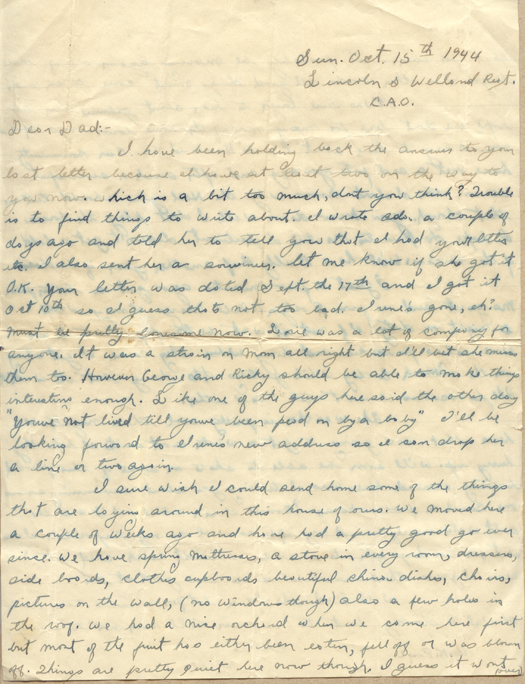 Sun. Oct. 15th 1944
Lincoln & Welland Regt.
C.A.O.
Dear Dad:-
I have been holding back the answer to your
last letter because I have at least two on the way to
you now which is a bit too much, dont you think? Trouble
is to find things to write about. I wrote Ado. a couple of
days ago and told her to tell you that I had your letter
etc. I also sent her a souvineer. let me know if she got it
O.K. Your letter was dated Sept. the 17th and I got it
Oct 10th so I guess thats not too bad. Irene's gone, eh?
must be pretty lonesome now. Irene was a lot of company for
anyone. It was a strain on mom all right but I'll bet she misses
them too. However George and Ricky should be able to make things
interesting enough. Like one of the guys here said the other day
"You've not lived till youve been peed on by a baby" I'll be
looking forward to Irene's new address so I can drop her
a line or two again.
I sure wish I could send home some of the things
that are laying around in this house of ours. We moved here
a couple of weeks ago and have had a pretty good go ever
since. We have spring mattresses, a stove in every room, dressers,
side boards, clothes cupboards beautiful china dishes, chairs,
pictures on the wall, (no windows though) also a few holes in
the roof. We had a nice orchard when we come here first
but most of the fruit has either been eaten, fell off or was blown
off. Things are pretty quiet here now though, I guess it wont
(over)